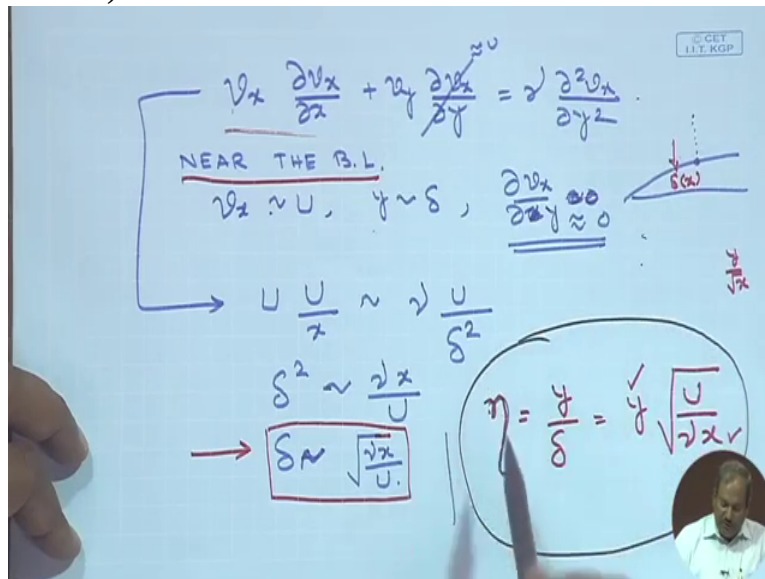 © CET
I.I.T. KGP
≈0
νx ∂νx/∂x + νy ∂νx/∂y = ν ∂²νx/∂y² .
NEAR THE B.L.
νx ~ U, y ~ δ, ∂νx/∂y ≈ 0
δ(x)
y/√x
U U/x ~ ν U/δ²
δ² ~ νx/U
→ δ ~ √(νx/U.)
η = y/δ = y √(U/νx)